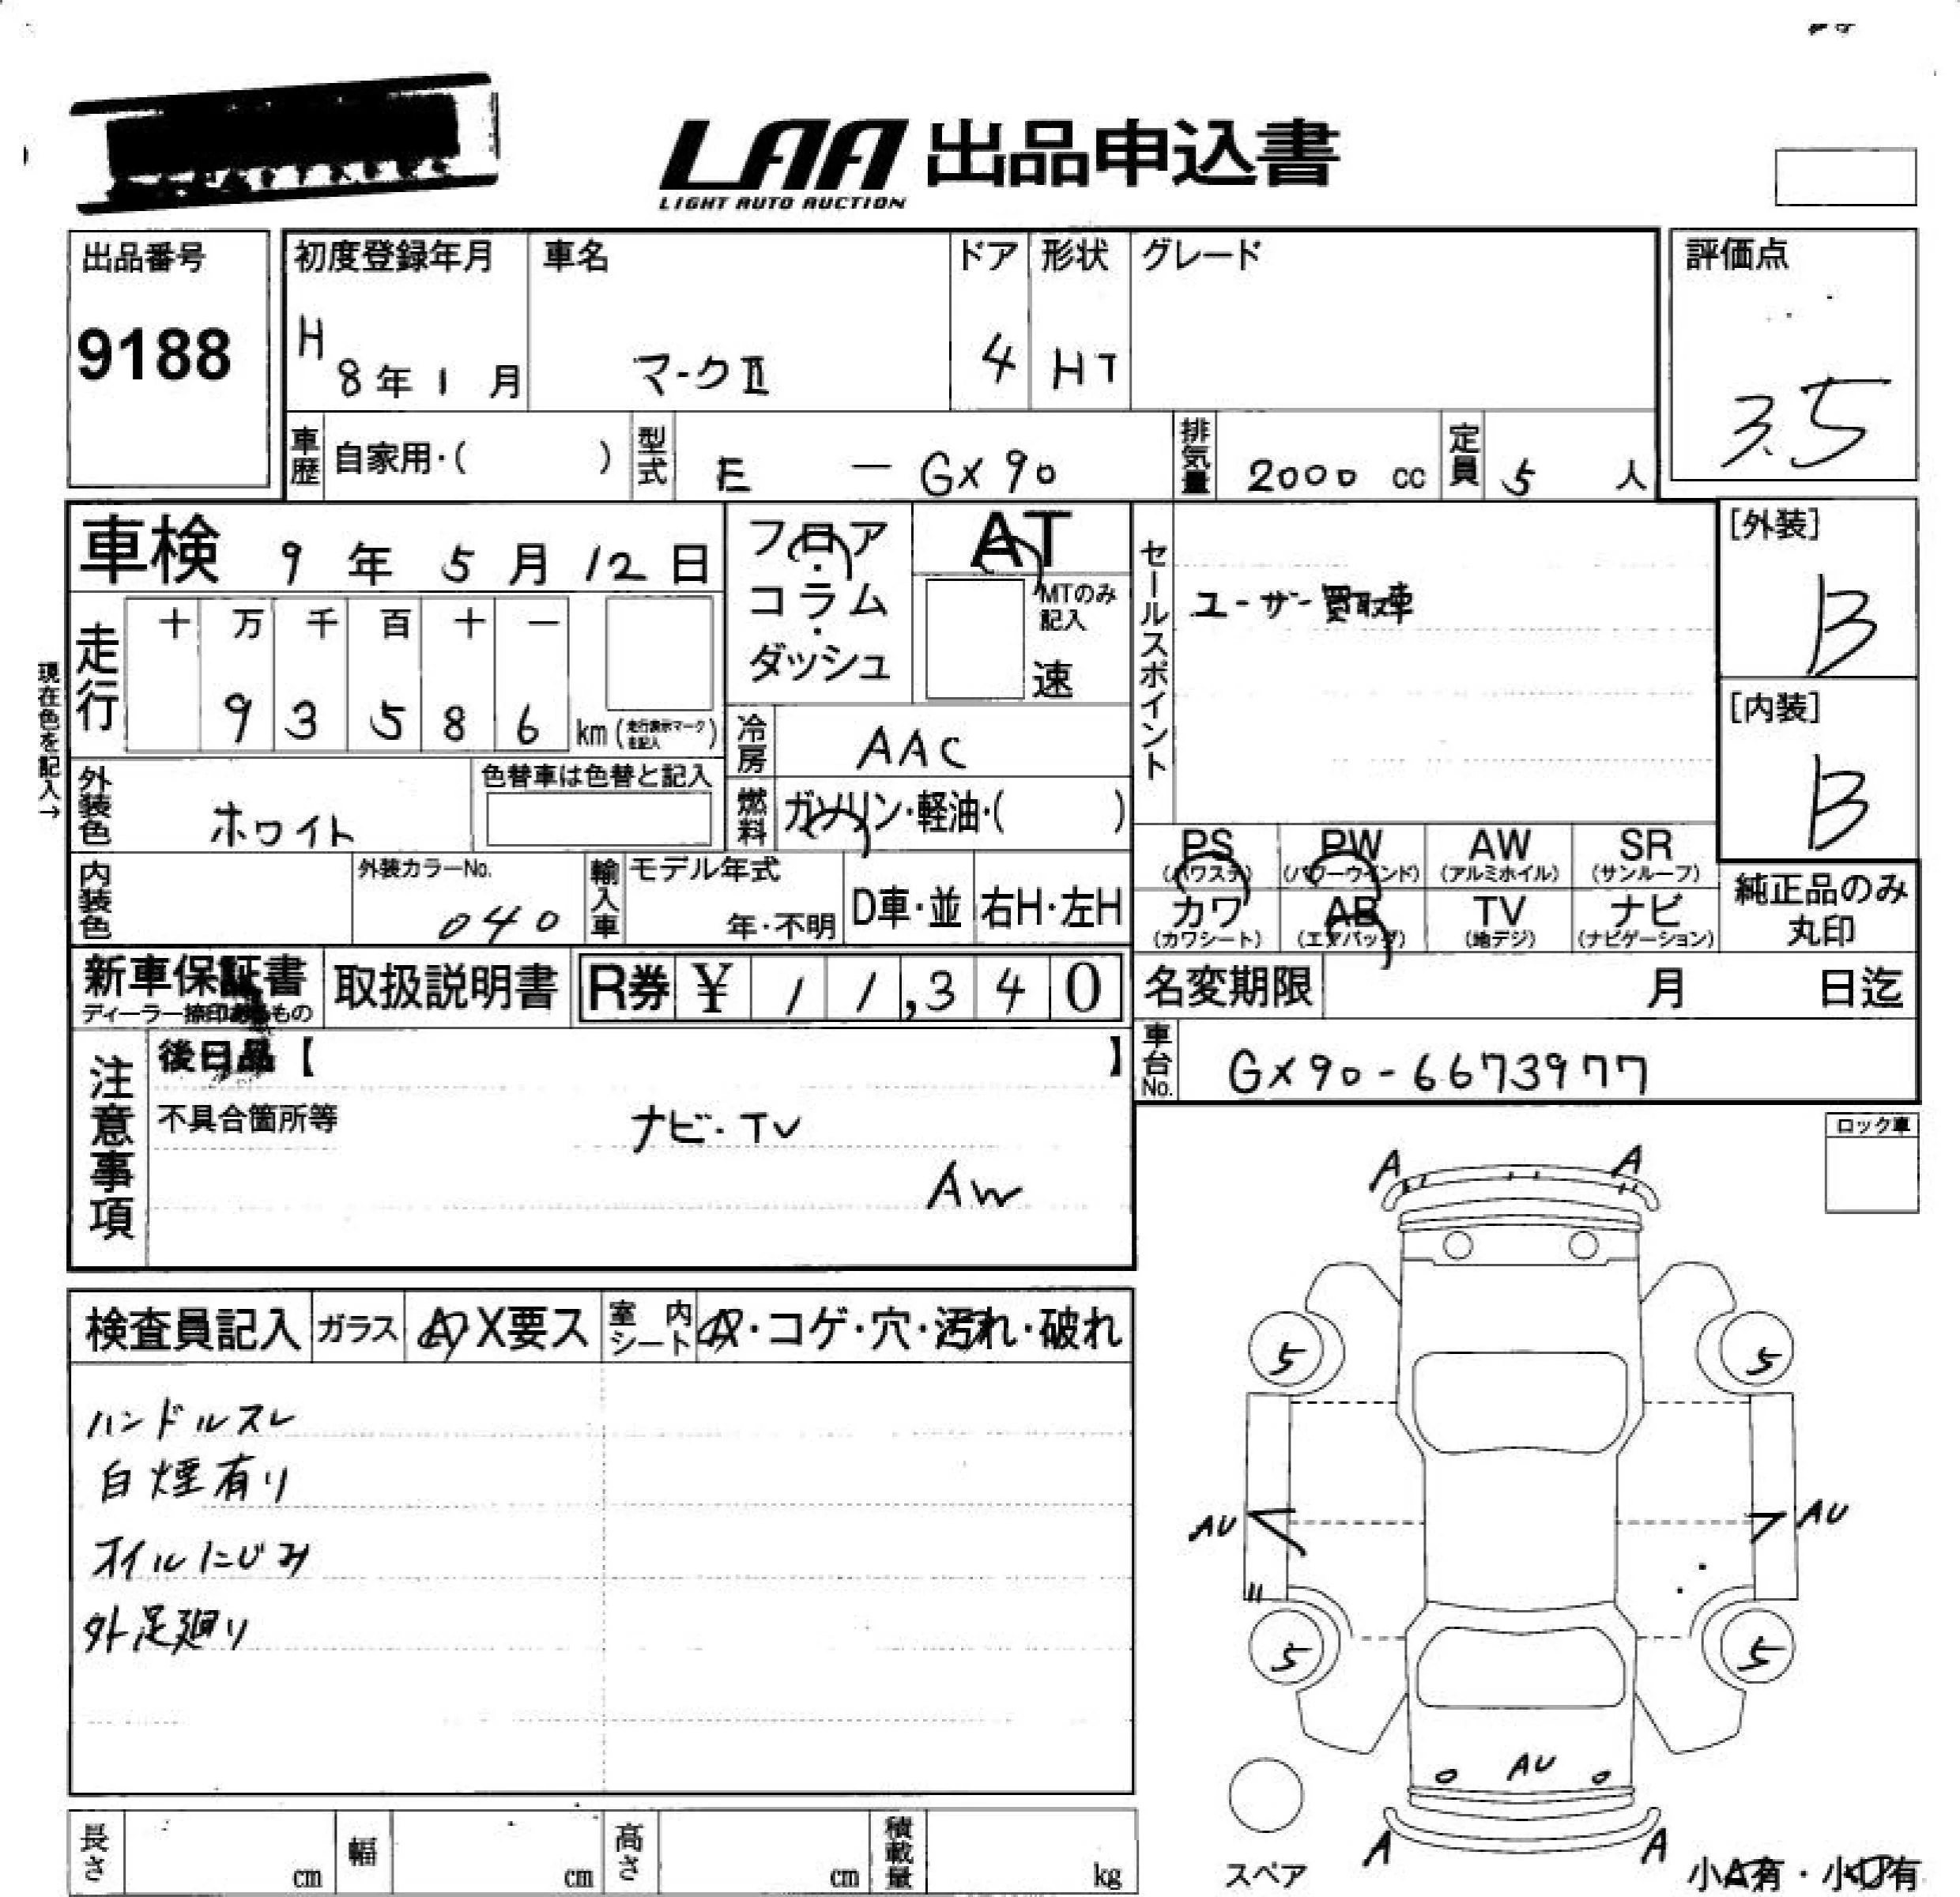 LAA 出品申込書
LIGHT AUTO AUCTION
出品番号
9188
初度登録年月
H 8年 1 月
車名
マークⅡ
ドア
4
形状
HT
グレード
評価点
3.5
車歴 自家用・( )
型式 E － GX90
排気量 2000 cc
定員 5 人
車検 9 年 5 月 12 日
フロア・コラム・ダッシュ
AT
MTのみ記入
速
セールスポイント
ユーザー買取車
[外装]
B
[内装]
B
現在色を記入→
走行
十 万 千 百 十 一
9 3 5 8 6 km (走行表示マークを記入)
冷房 AAC
外装色 ホワイト
色替車は色替と記入
燃料 ガソリン・軽油・( )
PS (パワステ)
PW (パワーウインド)
AW (アルミホイル)
SR (サンルーフ)
カワ (カワシート)
AB (エアバッグ)
TV (地デジ)
ナビ (ナビゲーション)
純正品のみ丸印
内装色
外装カラーNo.
040
輸入車 モデル年式
年・不明
D車・並
右H・左H
新車保証書
ディーラー捺印あるもの
取扱説明書
R券 ¥ 1 1,3 4 0
名変期限 月 日迄
車台No. GX90-6673977
注意事項
後日品【 】
不具合箇所等
ナビ・TV
AW
ロック車
検査員記入
ガラス A・X要ス
室内シート A・コゲ・穴・汚れ・破れ
ハンドルスレ
白煙有り
オイルにじみ
外足廻り
A A
5 5
AU AU
5 5
AU
A A
スペア
小A有・小U有
長さ cm
幅 cm
高さ cm
積載量 kg